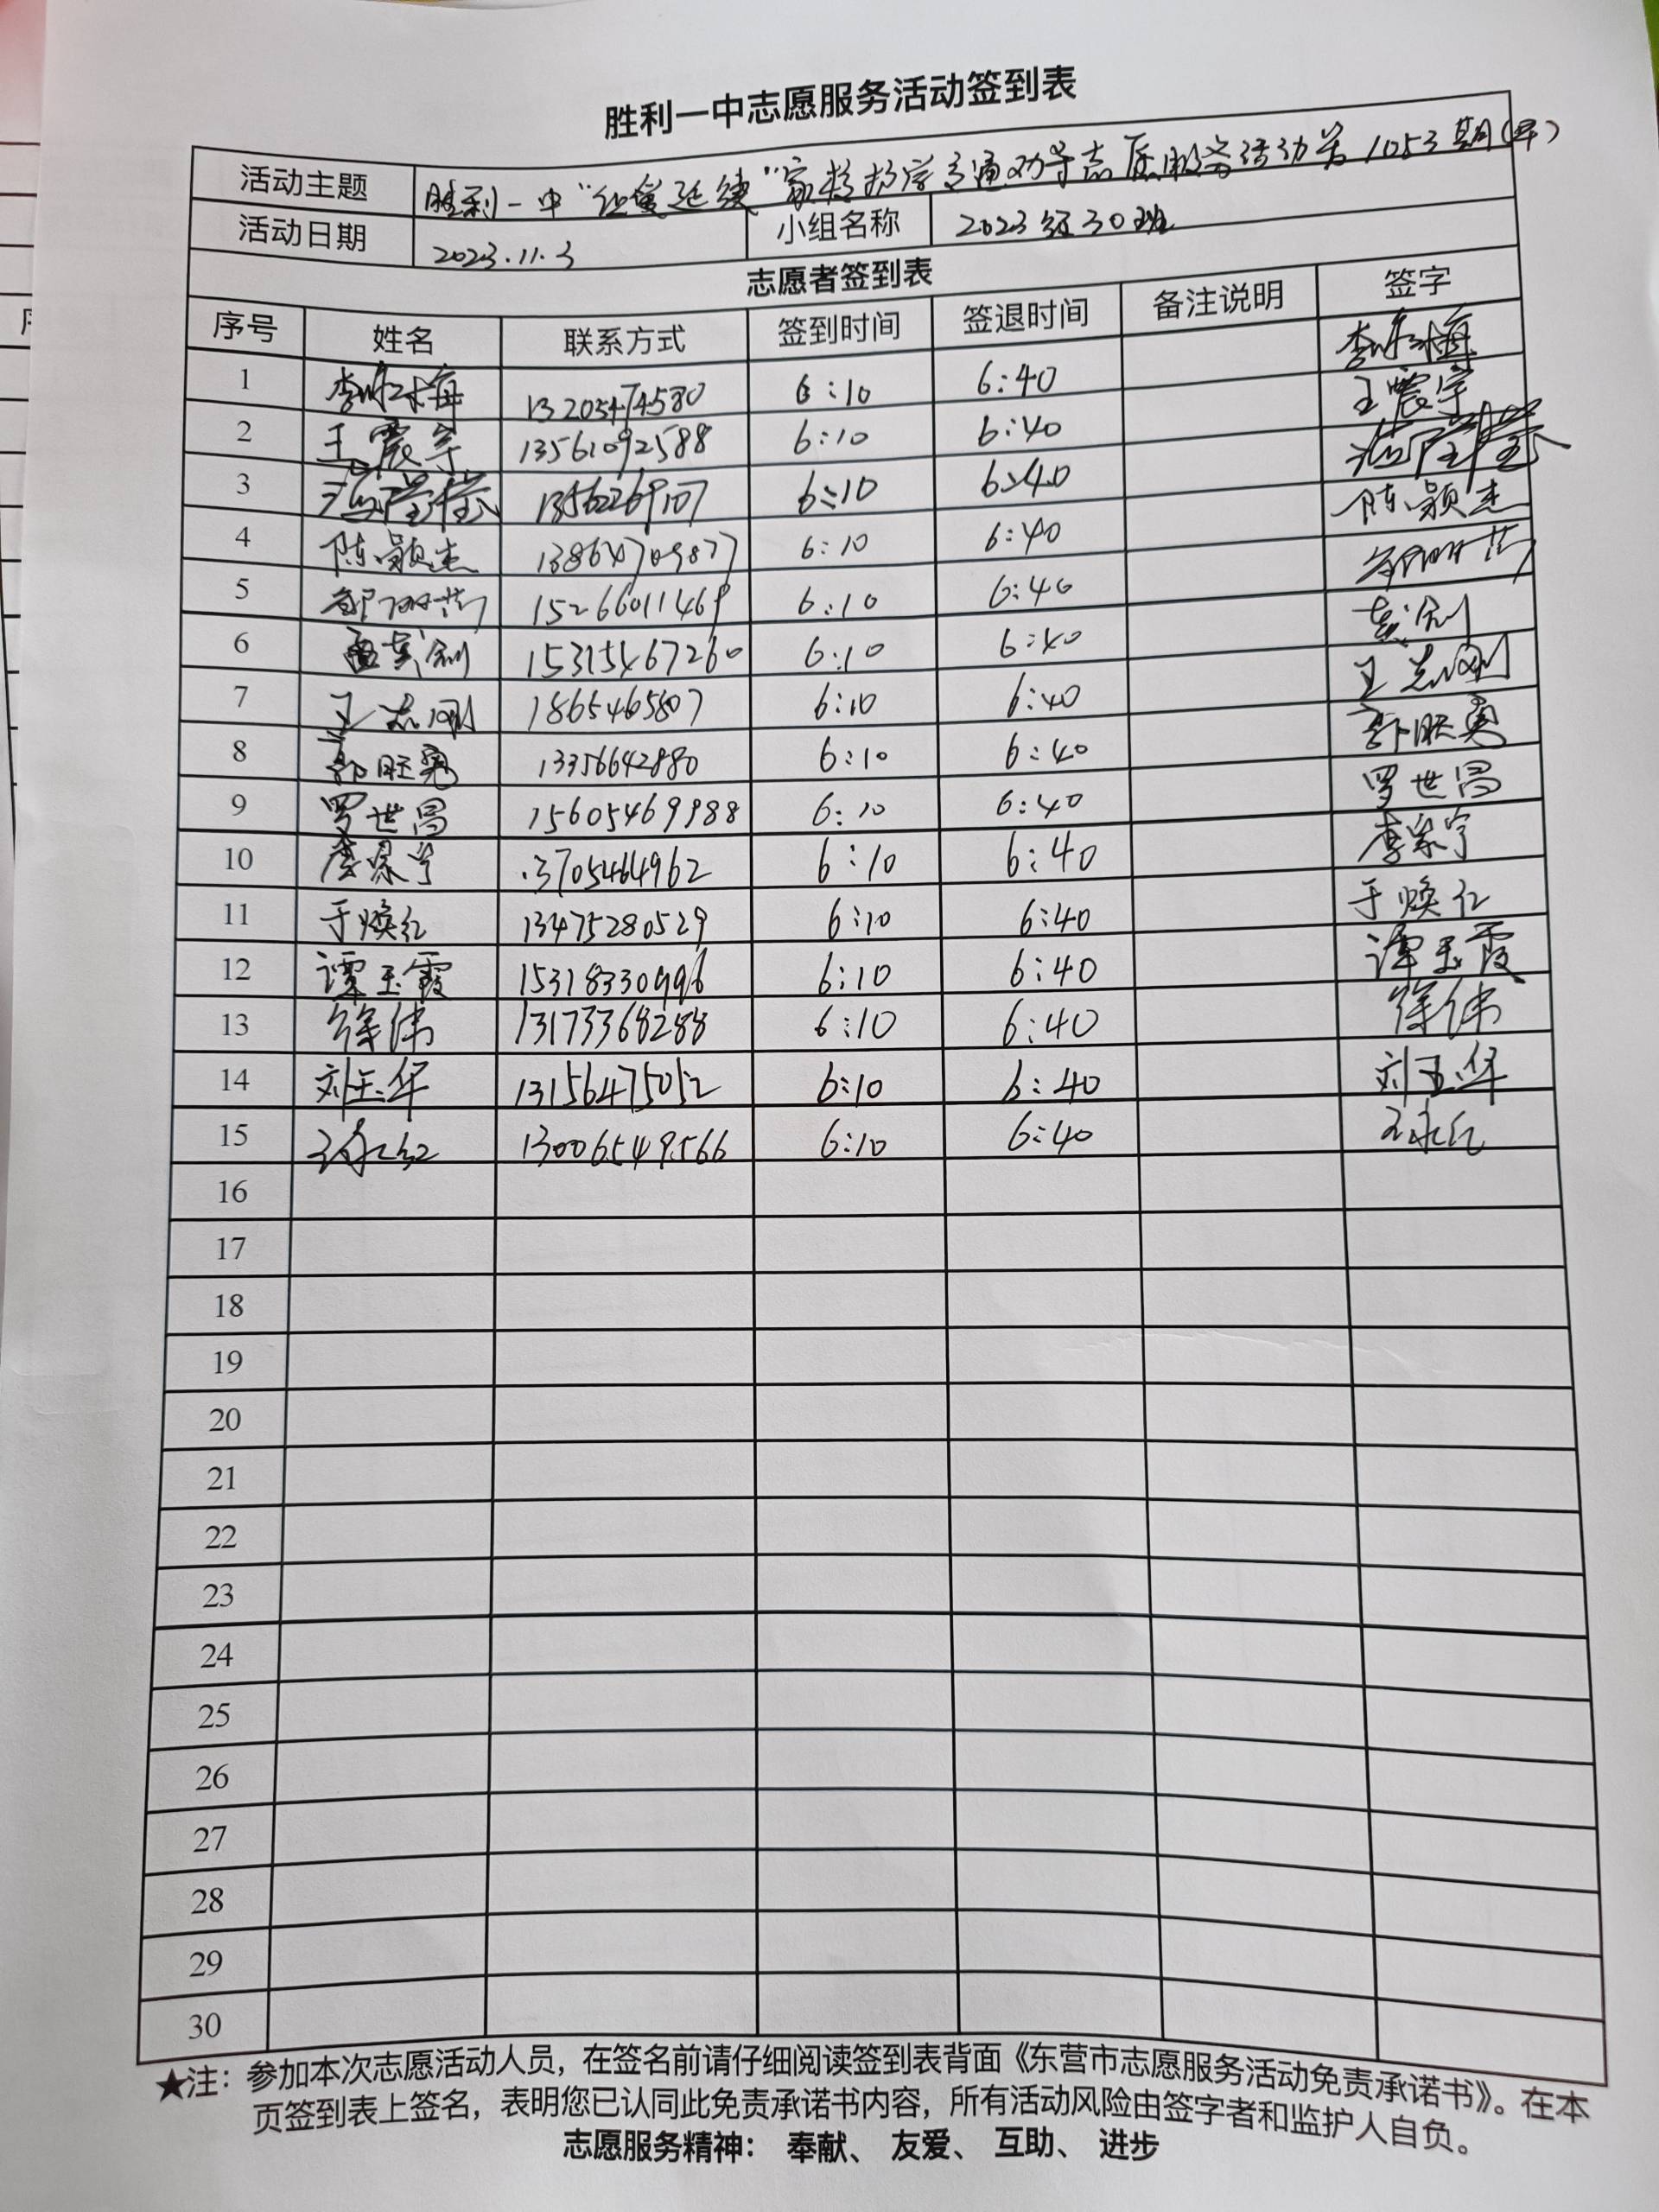 胜利一中志愿服务活动签到表
活动主题 胜利一中“让爱延续”家校护学交通劝导志愿服务活动第1053期(早)
活动日期 2023.11.3 小组名称 2023级30班
志愿者签到表
序号 姓名 联系方式 签到时间 签退时间 备注说明 签字
1 13205474580 6:10 6:40
2 王震宇 13561092588 6:10 6:40 王震宇
3 13562269107 6:10 6:40
4 陈颖杰 13864709877 6:10 6:40 陈颖杰
5 15266011469 6:10 6:40
6 15315467260 6:10 6:40
7 王志刚 1865465807 6:10 6:40 王志刚
8 13356642880 6:10 6:40
9 罗世昌 15605469988 6:10 6:40 罗世昌
10 李家宁 13705464962 6:10 6:40 李家宁
11 于焕红 13475280529 6:10 6:40 于焕红
12 谭玉霞 15318330996 6:10 6:40 谭玉霞
13 徐伟 13173368288 6:10 6:40 徐伟
14 刘玉华 13156475052 6:10 6:40 刘玉华
15 王永红 13006549566 6:10 6:40 王永红
16
17
18
19
20
21
22
23
24
25
26
27
28
29
30
★注：参加本次志愿活动人员，在签名前请仔细阅读签到表背面《东营市志愿服务活动免责承诺书》。在本
页签到表上签名，表明您已认同此免责承诺书内容，所有活动风险由签字者和监护人自负。
志愿服务精神： 奉献、 友爱、 互助、 进步